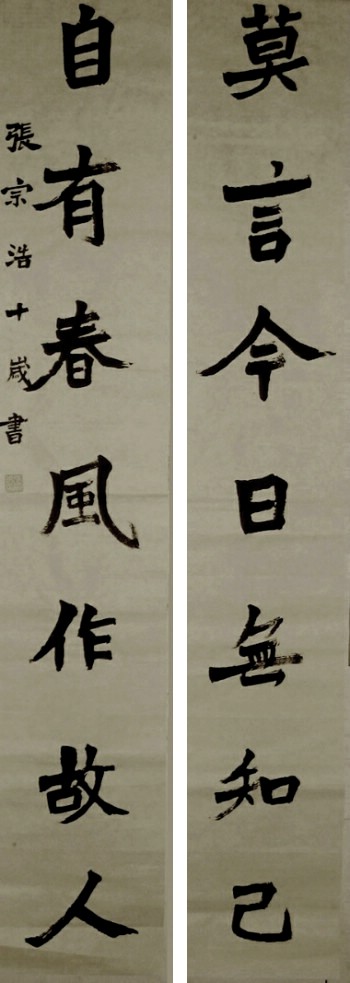 莫言今日無知己
自有春風作故人
張宗浩十歲書